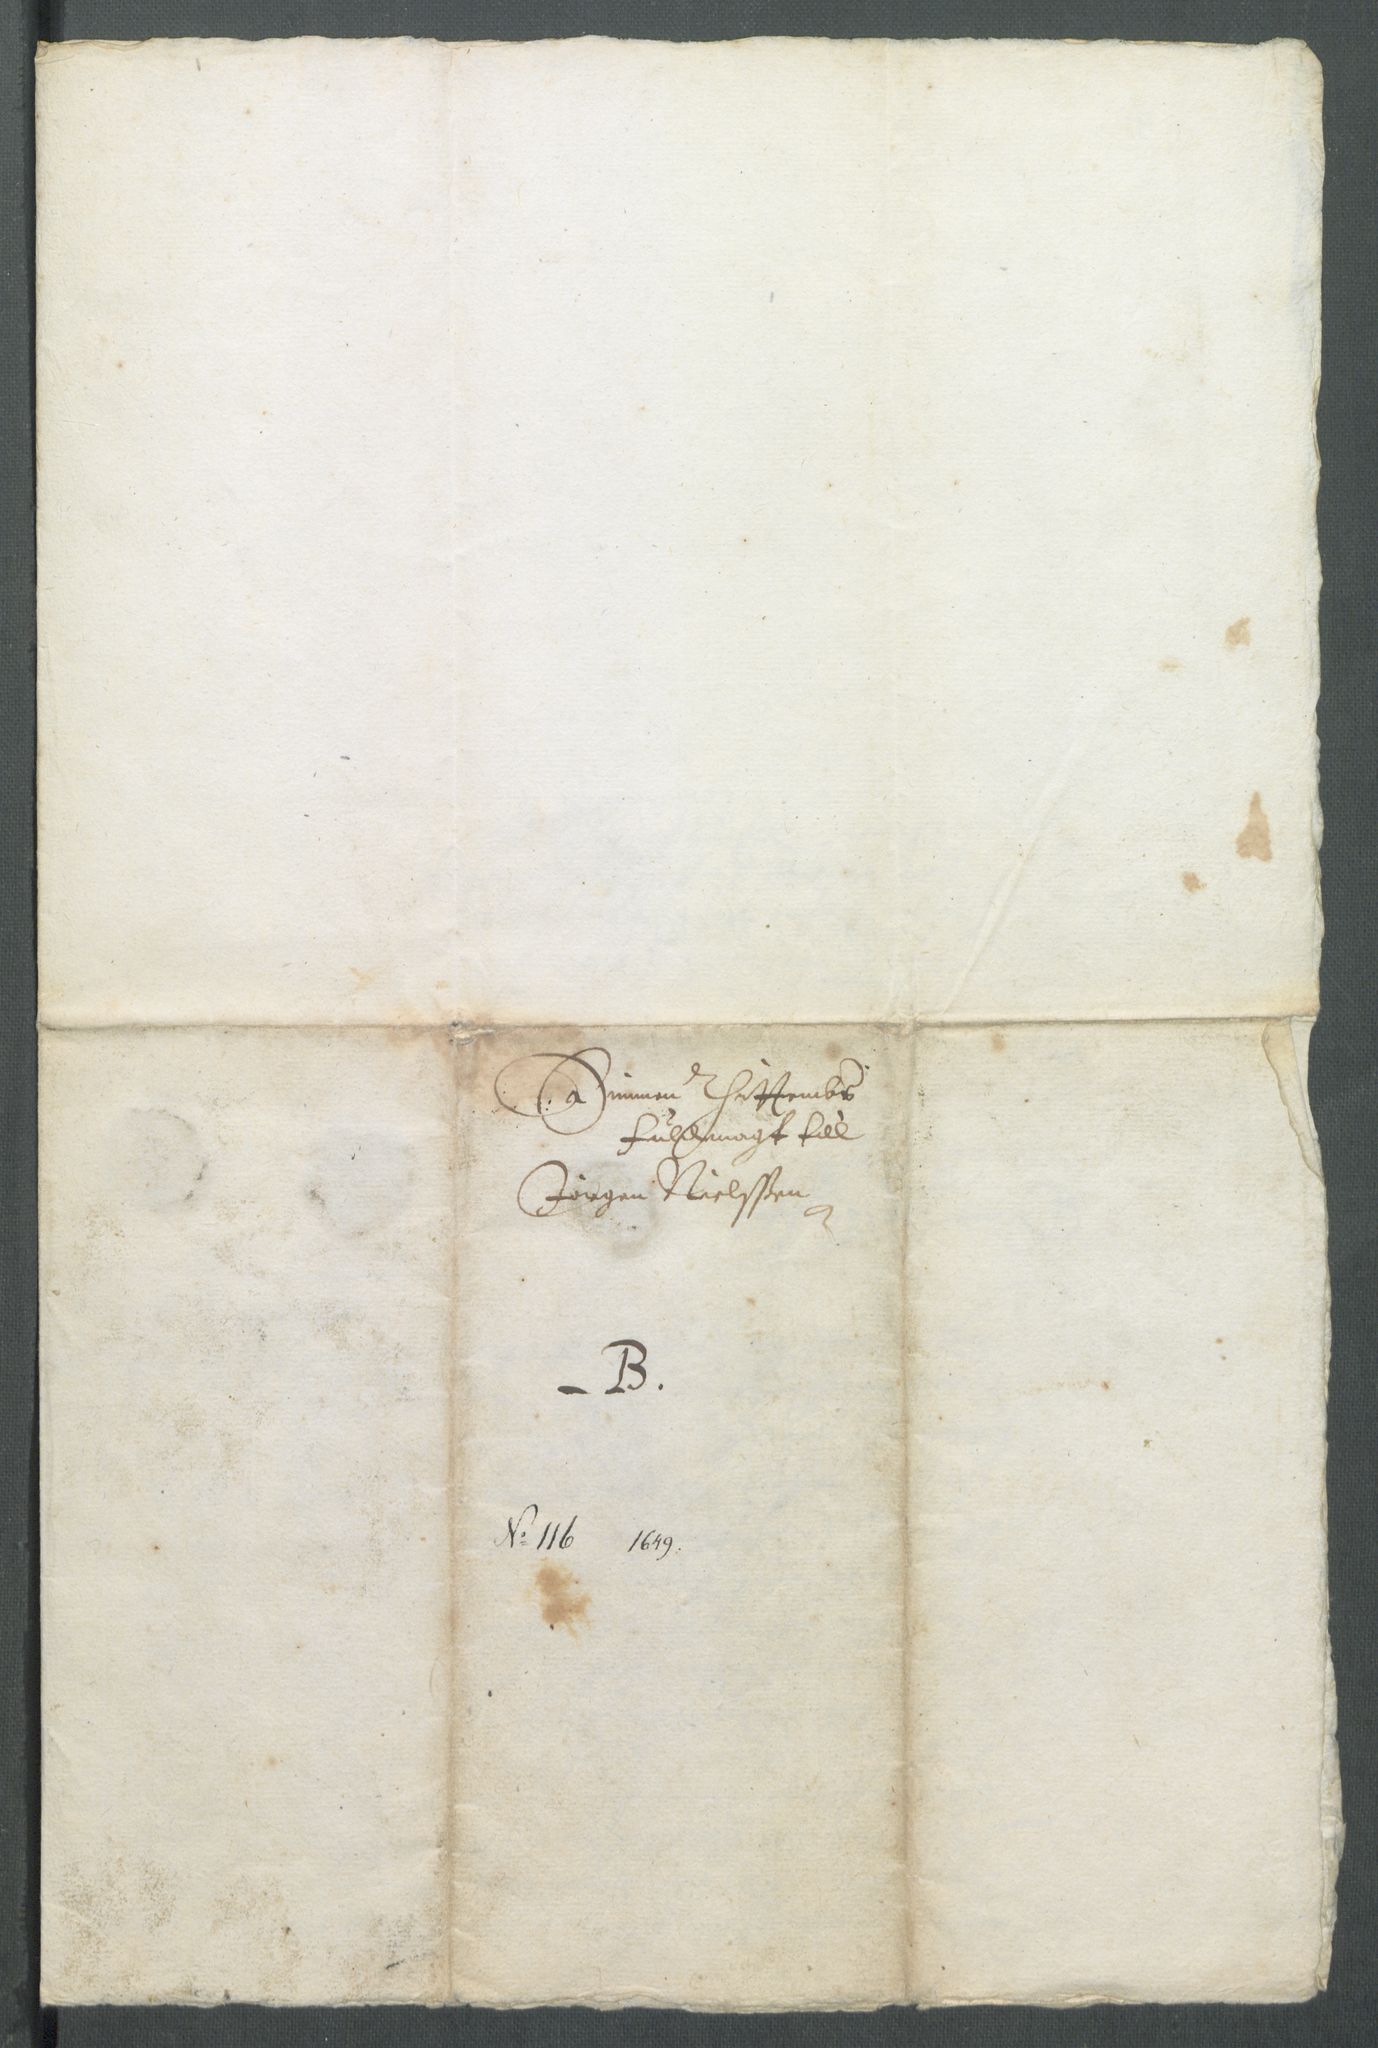 Simmen
fuldmagt till
Jörgen Nielssen
B.
No 116 1649.